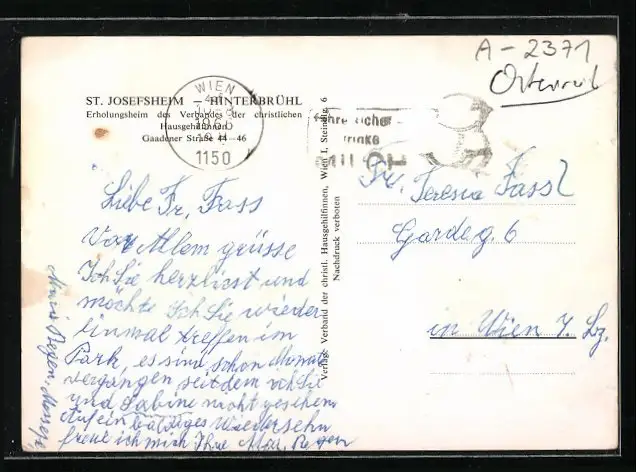 A-2371
Österreich
ST. JOSEFSHEIM — HINTERBRÜHL
Erholungsheim des Verbandes der christlichen
Hausgehilfinnen
Gaadener Straße 44—46
WIEN
1150
Verlag: Verband der christl. Hausgehilfinnen, Wien I, Steindlg. 6
Nachdruck verboten
Liebe Fr. Fassl
Vor Allem grüsse
Ich Sie herzlichst und
möchte Ich Sie wieder
einmal treffen im
Park, es sind schon Monate
vergangen seitdem ich Sie
und Sabine nicht gesehen
Auf ein baldiges Wiedersehn
freue ich mich Ihre
Fr. Teresia Fassl
Gardeg. 6
in Wien 7. Bz.